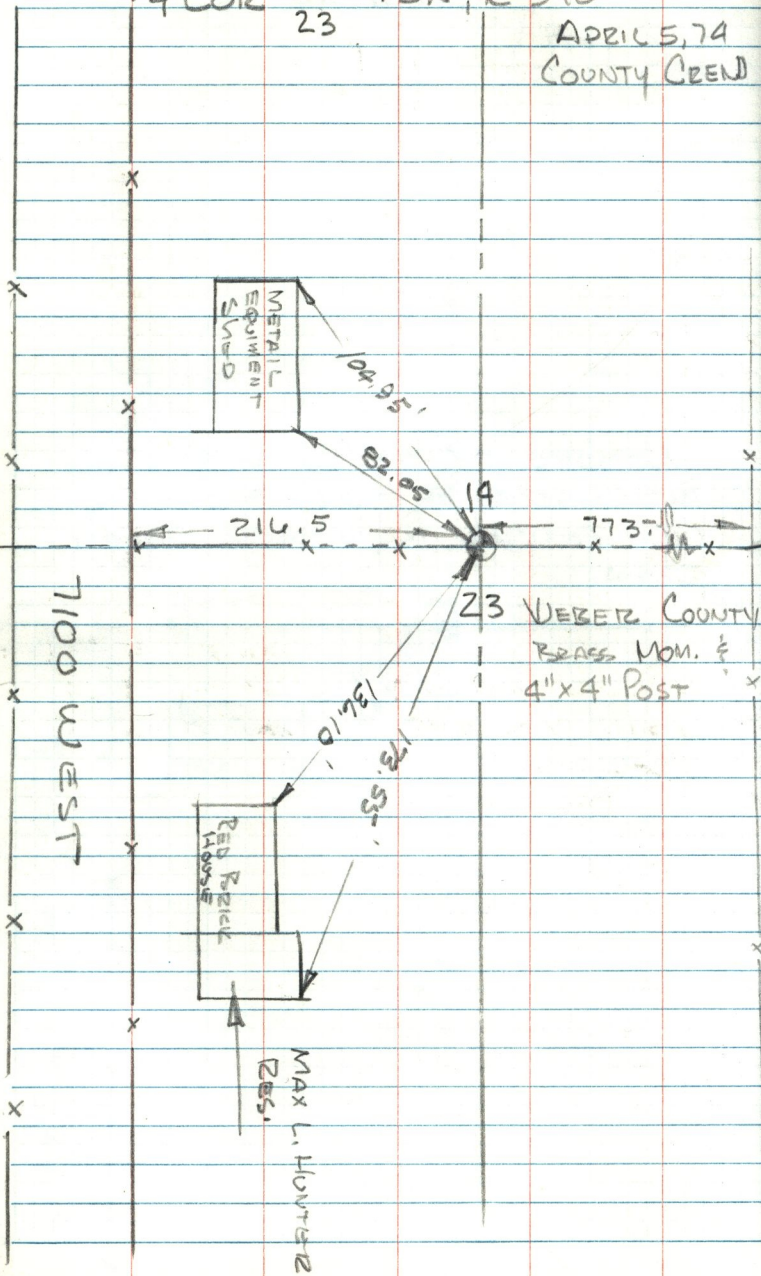 23
APRIL 5, 74
COUNTY CREW
METAIL
EQUIMENT
SHED
104.95'
82.05
14
216.5
773-
23
WEBER COUNTY
BRASS MON. &
4"x4" POST
7100 WEST
136.10'
173.53-'
RED BRICK
HOUSE
MAX L. HUNTER
RES.